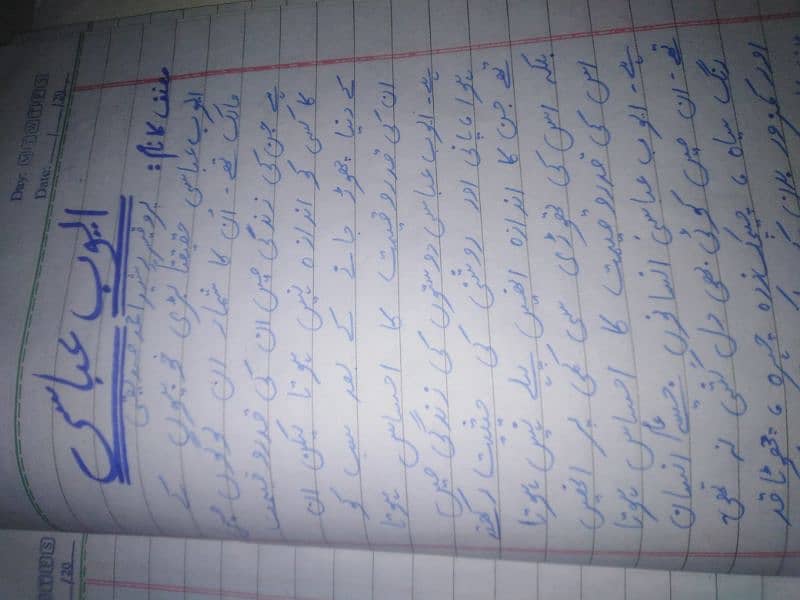 Day: M T W T F S
Date: __/__/20__
ایوب عباسی
مصنف کا نام: پروفیسر رشید احمد صدیقی
ایوب عباسی حقیقتاً بڑی خوبیوں کے
مالک تھے۔ ان کا شمار ان لوگوں میں
ہے جن کی زندگی میں ان کی قدروقیمت
کا کسی کو اندازہ نہیں ہوتا لیکن ان
کے دنیا چھوڑ جانے کے بعد سب کو
ان کی قدروقیمت کا احساس ہوتا
ہے۔ ایوب عباسی دوستوں کی زندگی میں
ہوا پانی اور روشنی کی حیثیت رکھتے
تھے جن کا اندازہ انہیں پہلے نہیں ہوتا
بلکہ اس کی تھوڑی سی کمی پر انہیں
اس کی قدروقیمت کا احساس ہوتا
ہے۔ ایوب عباسی انسانوں جیسے عام انسان
تھے۔ ان میں کوئی بھی دل کشی نہ تھی۔
رنگ سیاہ، چیچک زدہ چہرہ، چھوٹا قد
اور کمزور بدن کے